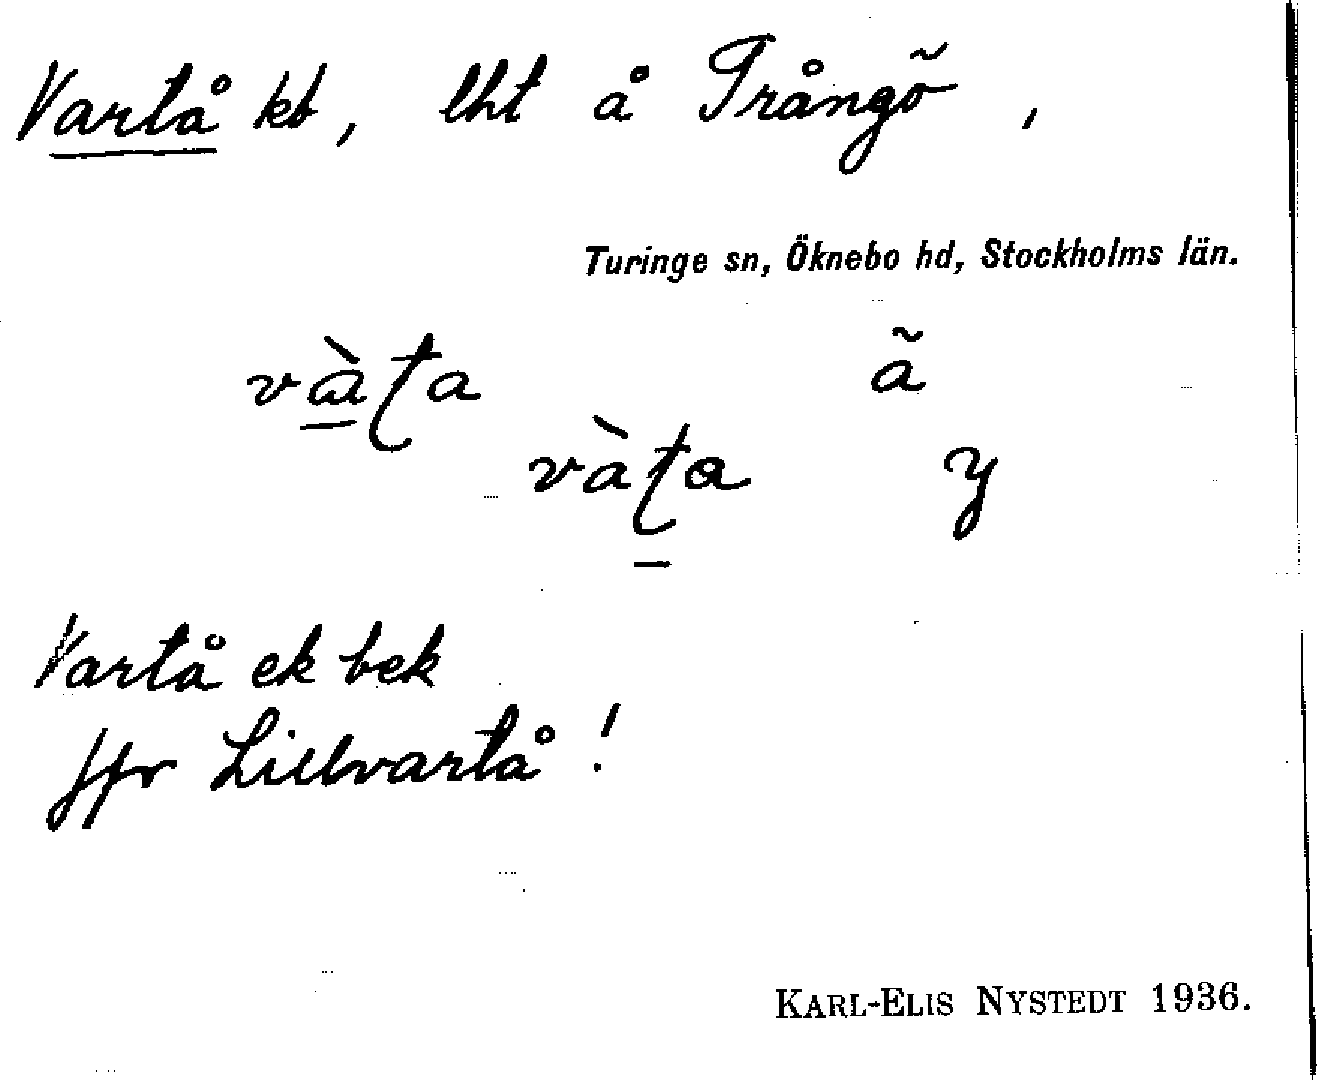 Vartå kt, lht å Trångö,
Turinge sn, Öknebo hd, Stockholms län.
vàʈa ã
vàʈa y
Vartå ek bek
jfr Lillvartå!
KARL-ELIS NYSTEDT 1936.